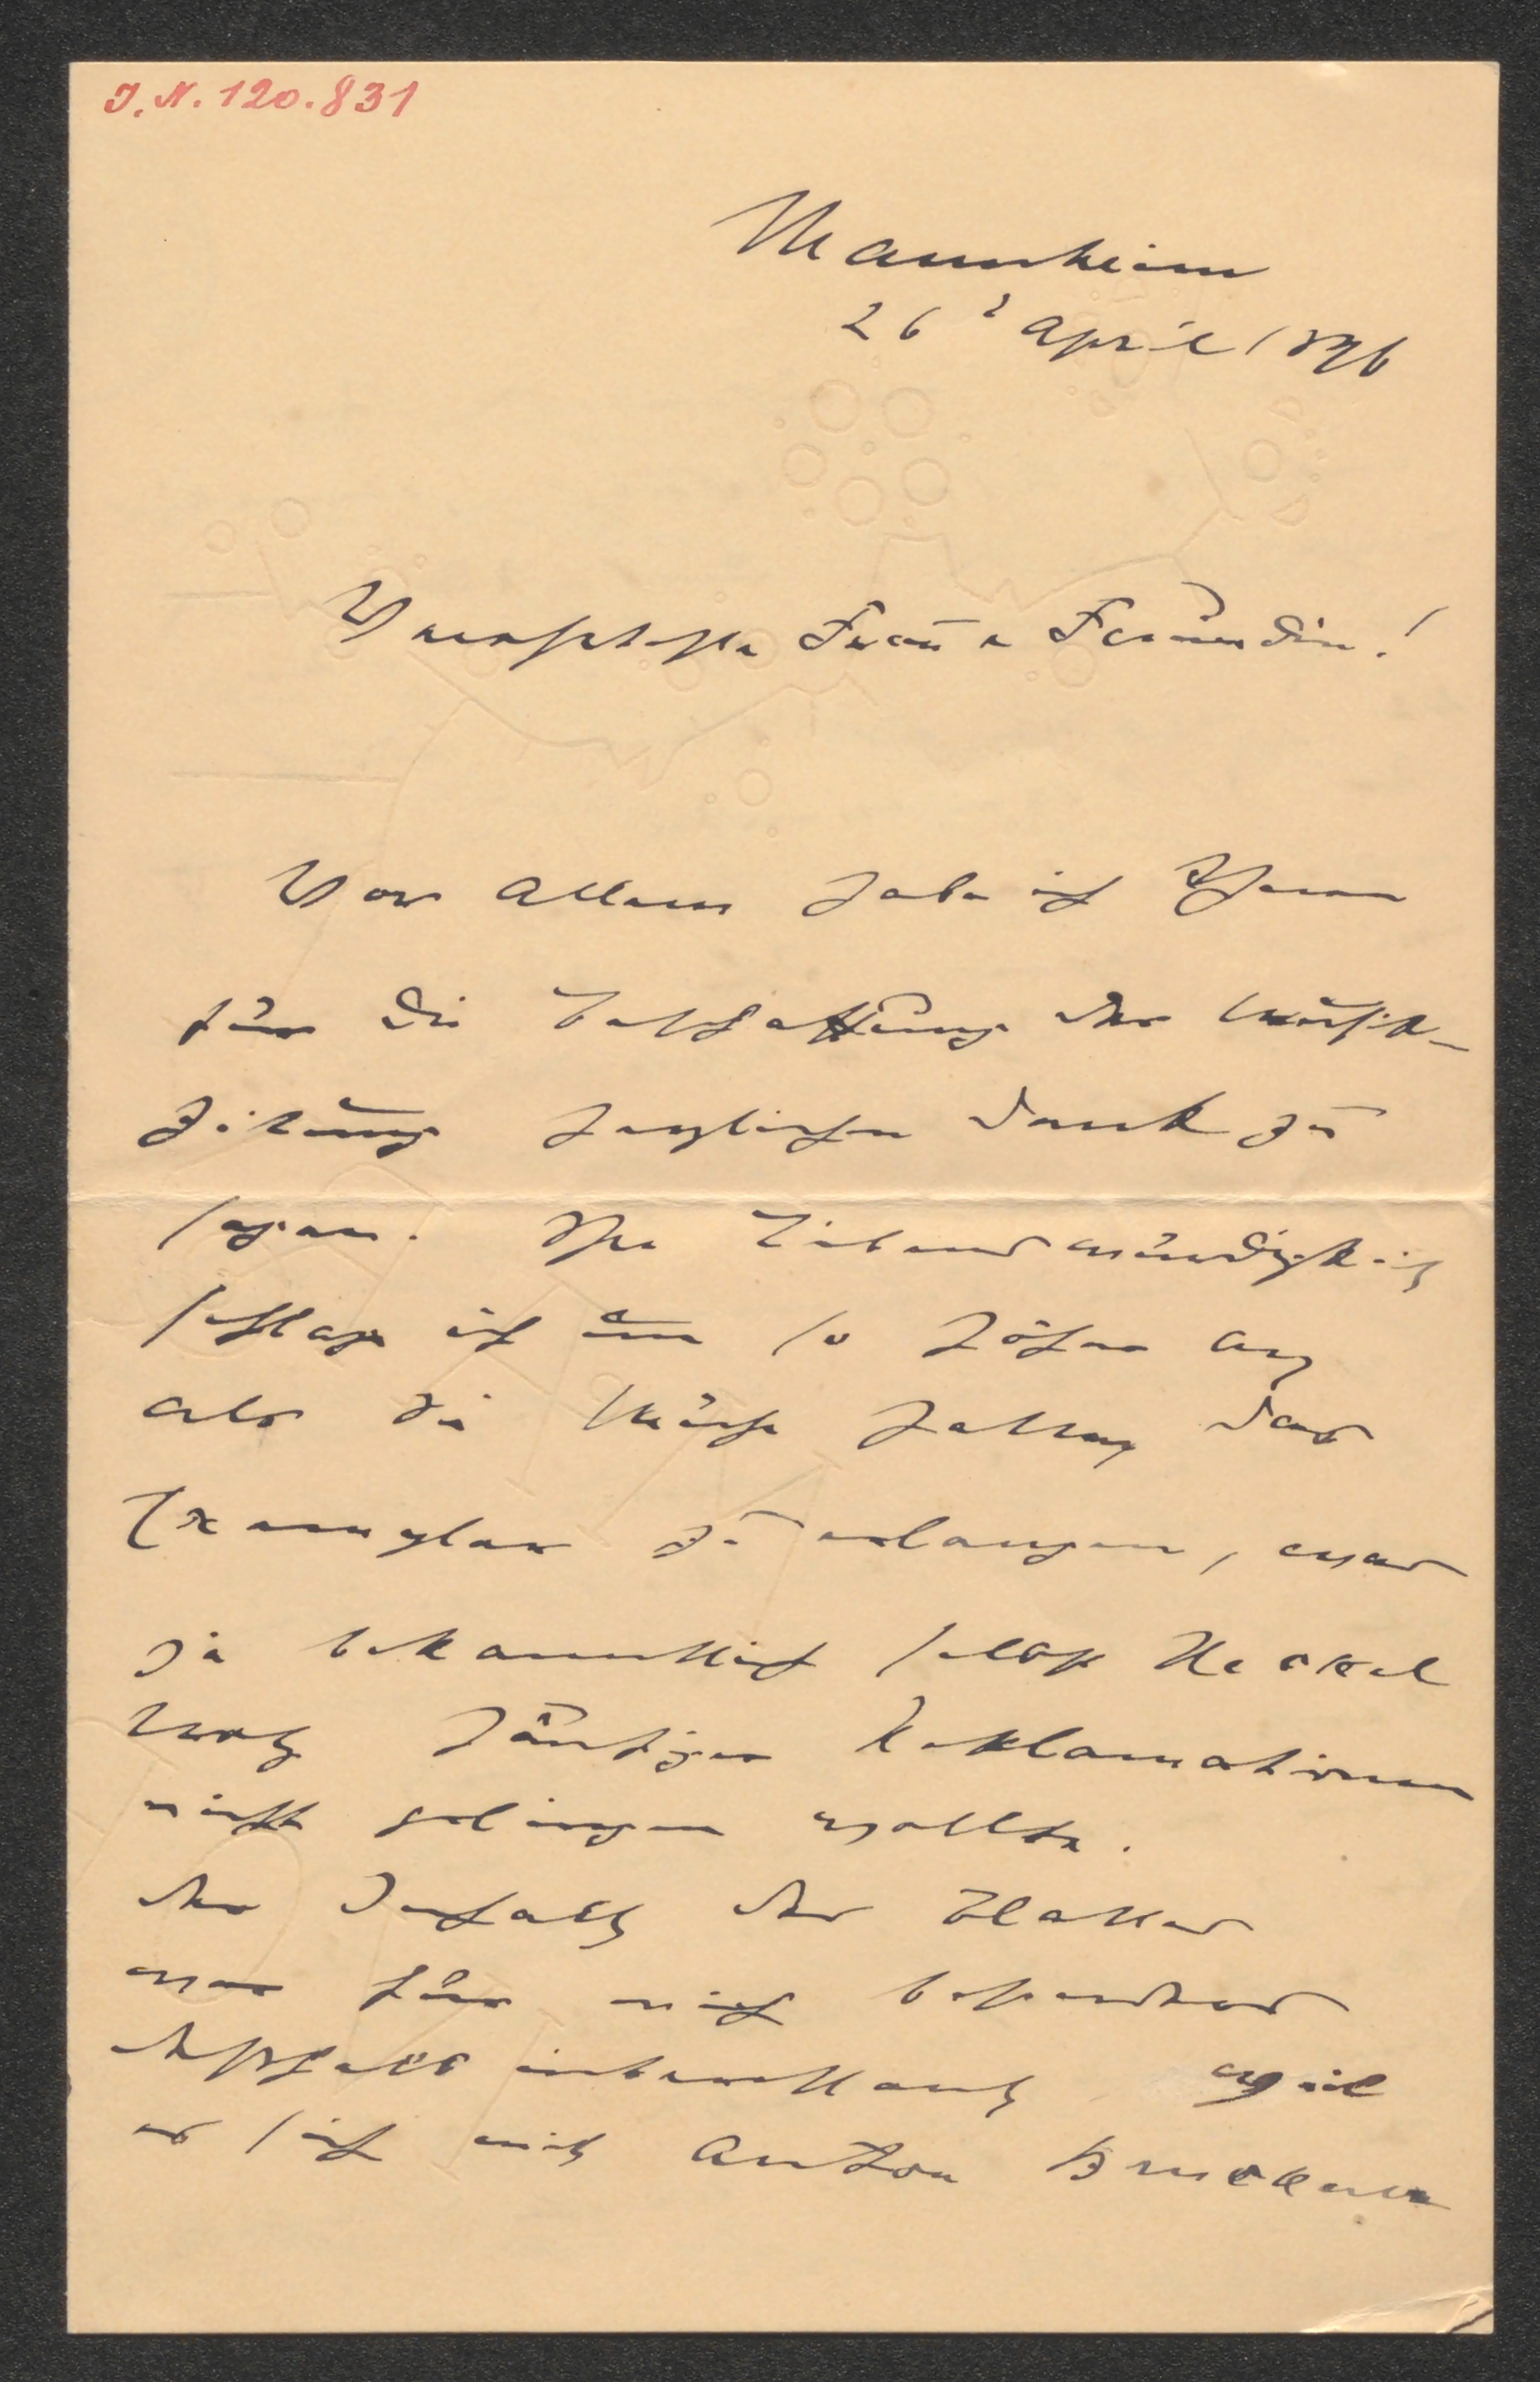 I. N. 120.831
Mannheim
26t April 1896
Verehrteste Frau u Freundin!
Vor Allem habe ich Ihnen
für die Beschaffung der Musik-
zeitung herzlichen Dank zu
sagen. Ihre Liebenswürdigkeit
schlage ich um so höher an
als Sie Mühe hatten das
Exemplar zu erlangen, was
ja bekanntlich selbst Heckel
trotz häufiger Reklamationen
nicht gelingen wollte.
Der Inhalt der Blätter
war für mich besonders
deßhalb interessant, weil
er sich mit Anton Bruckner